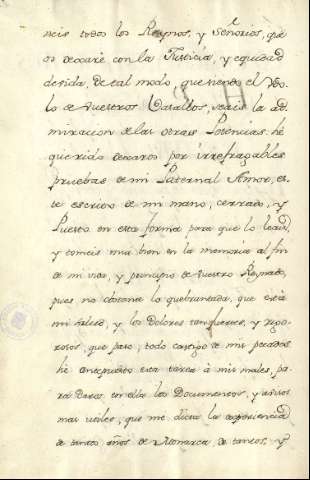 neis todos los Reynos, y Señorios, que
os dexaré con la Justicia, y equidad
devida, de tal modo, que siendo el
de vuestros Vasallos, seais la ad
miracion de las otras Potencias: hé
querido dexaros por irrefragables
pruebas de mi Paternal Amor, es
te escrito de mi mano, cerrado, y
Puesto en esta forma para que lo leais,
y tomeis mui bien en la memoria al fin
de mi vida, y principio de vuestro Reynado,
pues no obstante lo quebrantada, que está
mi salud, y los Dolores tan fuertes, y rigo
rosos, que paso, todo castigo de mis pecados
hé antepuesto esta tarea á mis males, pa
ra daros con ella los Documentos, y avisos
mas utiles, que me dicta la experiencia
de tantos años de Monarca de tantos, y